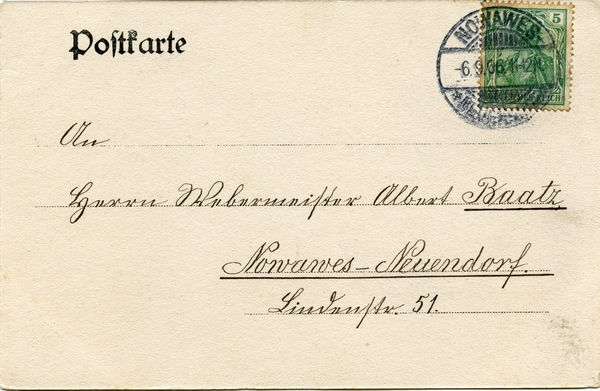 Postkarte
NOWAWES
5
-6.9.06.11-12V.
An
Herrn Webermeister Albert Baatz
Nowawes-Neuendorf.
Lindenstr. 51.